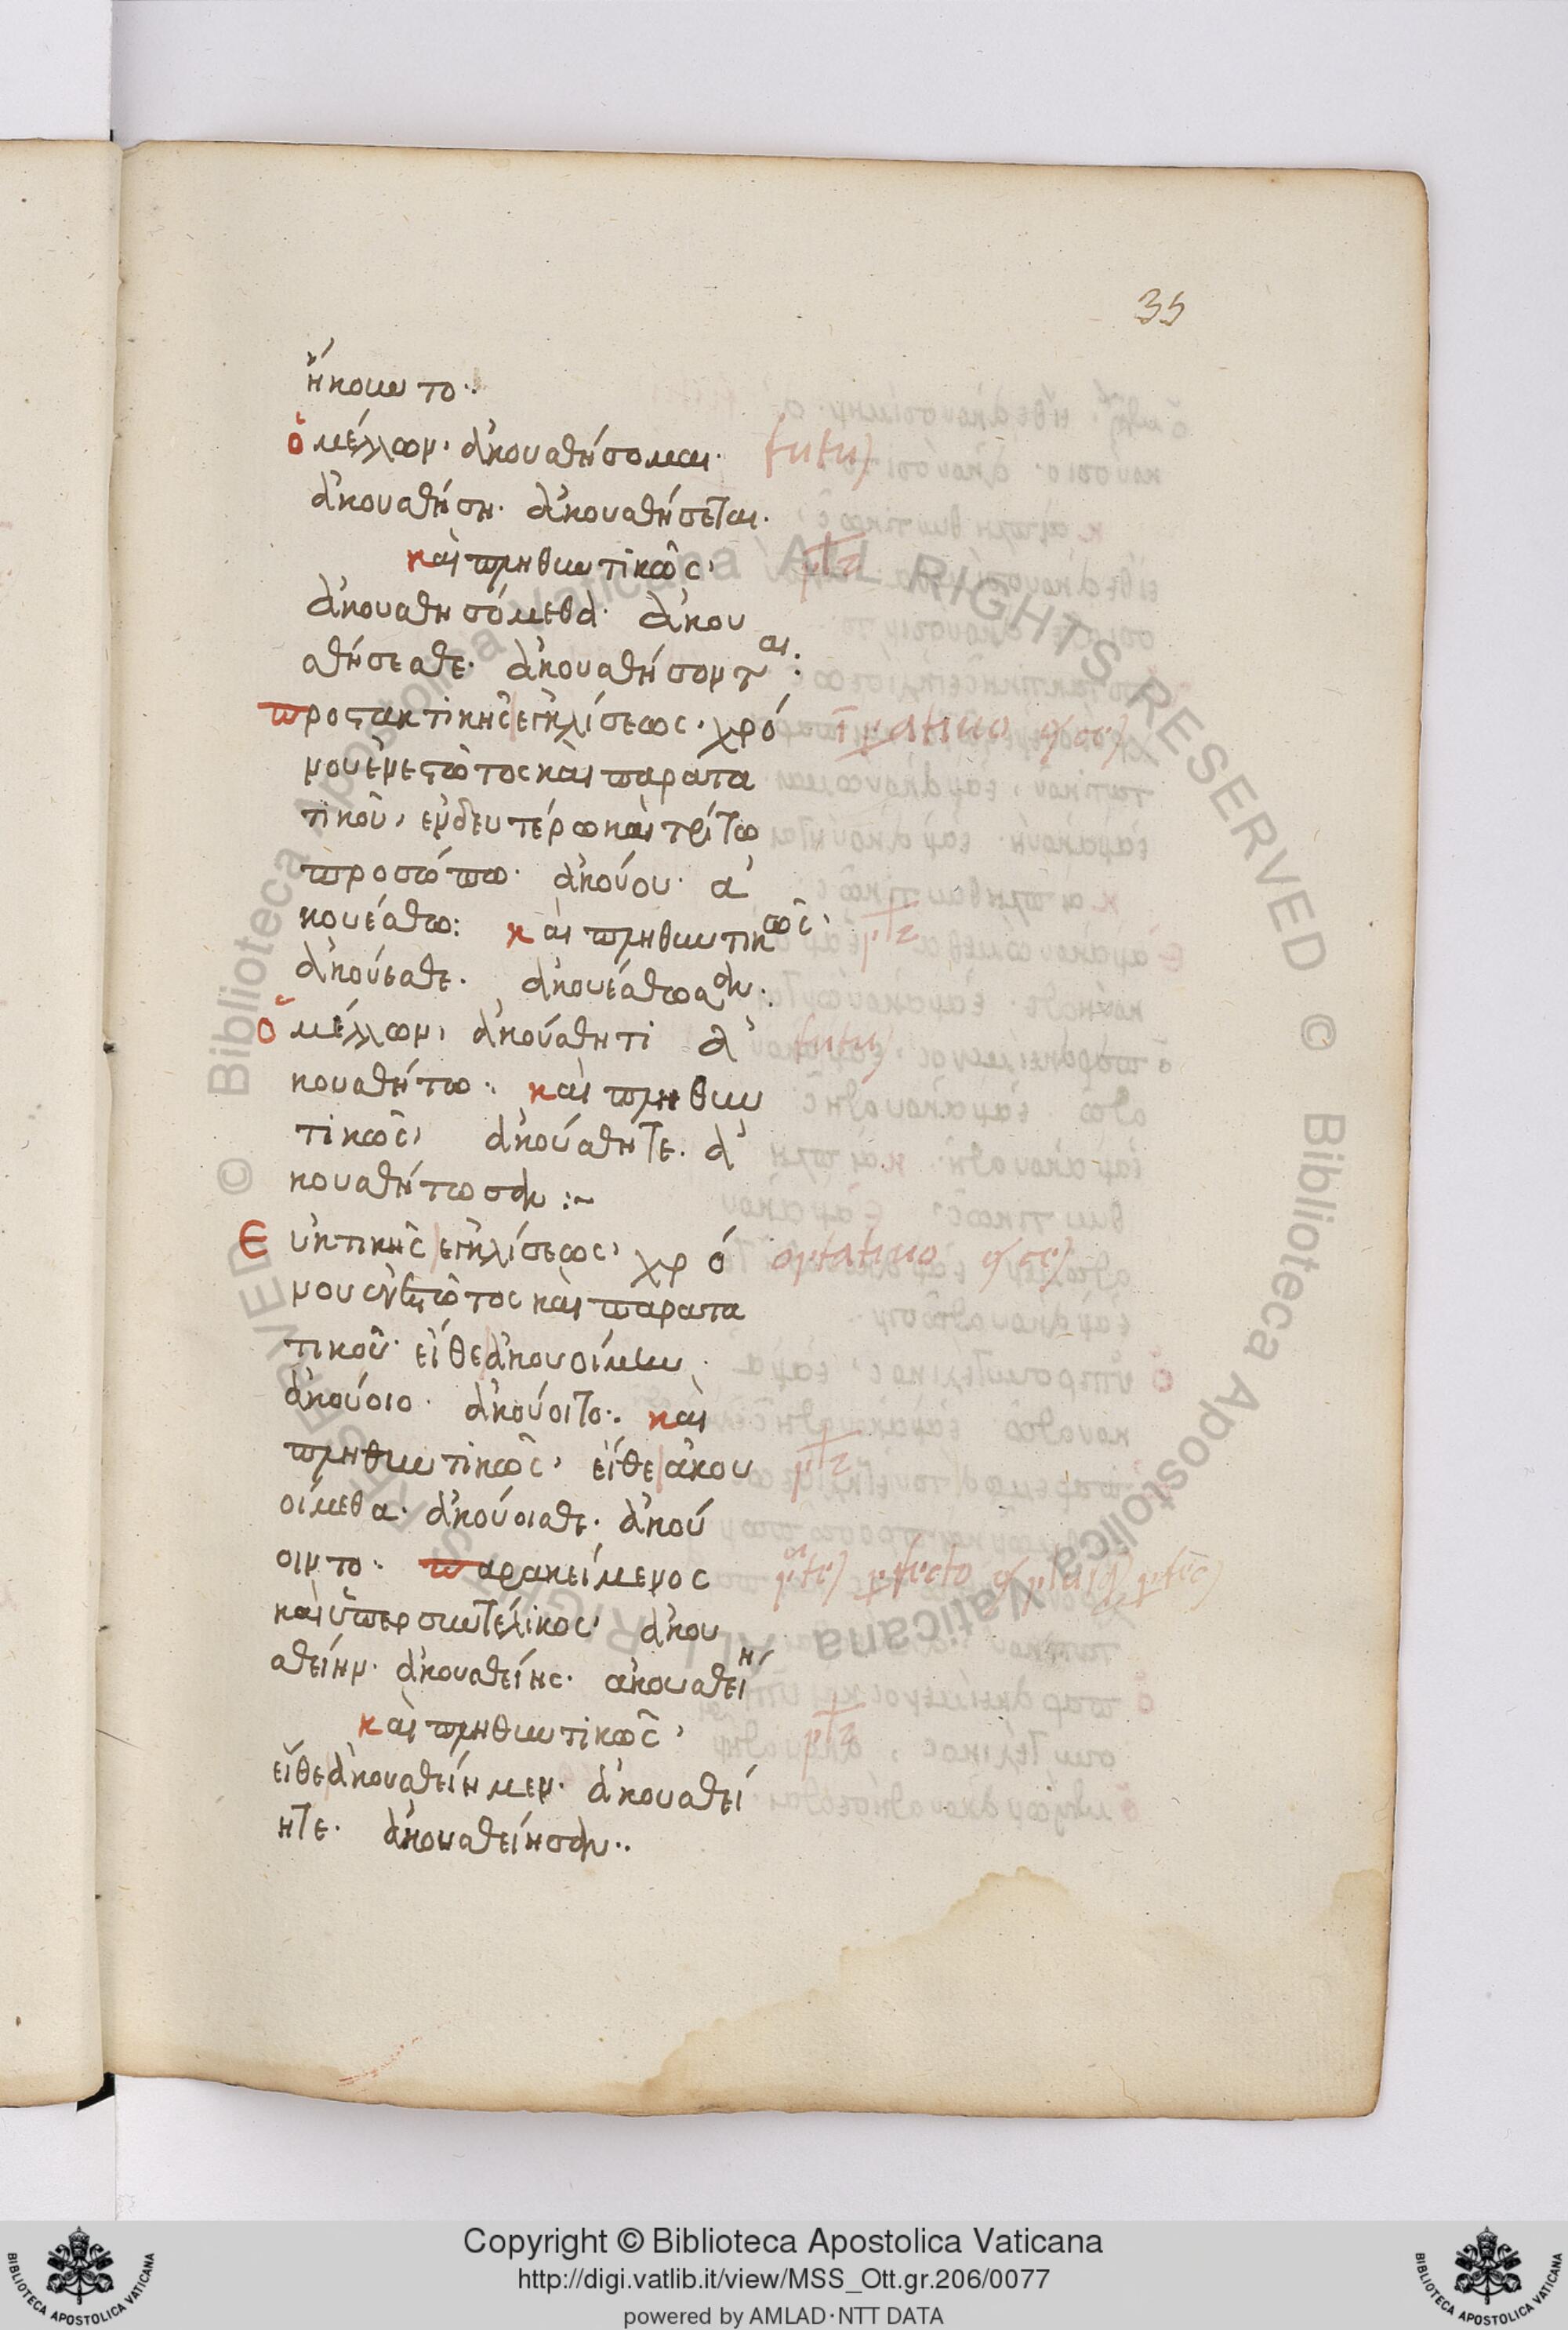 35
ἤκουντο·
ὁ μέλλων· ἀκουσθήσομαι· futu)
ἀκουσθήση· ἀκουσθήσεται·
καὶ πληθυντικῶς,
ἀκουσθησόμεθα· ἀκου
σθήσεσθε· ἀκουσθήσονται:
προστακτικῆς ἐγκλίσεως· χρό
νου ἐνεστῶτος καὶ παρατα
τικοῦ, ἐν δευτέρω καὶ τρίτω
προσώπω· ἀκούου· ἀ
κουέσθω: καὶ πληθυντικῶς,
ἀκούεσθε· ἀκουέσθωσαν:
ὁ μέλλων, ἀκούσθητι ἀ futu)
κουσθήτω: καὶ πληθυν
τικῶς, ἀκούσθητε. ἀ
κουσθήτωσαν:~
Εὐκτικῆς ἐγκλίσεως, χρό optatiuo
νου ἐνεστῶτος καὶ παρατα
τικοῦ· εἴθε ἀκουοίμην.
ἀκούοιο· ἀκούοιτο·. καὶ
πληθυντικῶς, εἴθε ἀκου
οίμεθα· ἀκούοισθε· ἀκού
οιντο· παρακείμενος
καὶ ὑπερσυντέλικος, ἀκου
σθείην· ἀκουσθείης· ἀκουσθείη,
καὶ πληθυντικῶς,
εἴθε ἀκουσθείημεν· ἀκουσθεί
ητε· ἀκουσθείησαν··
© Biblioteca Apostolica Vaticana ALL RIGHTS RESERVED © Biblioteca Apostolica Vaticana ALL RIGHTS RESERVED
Copyright © Biblioteca Apostolica Vaticana
http://digi.vatlib.it/view/MSS_Ott.gr.206/0077
powered by AMLAD·NTT DATA
BIBLIOTECA APOSTOLICA VATICANA
BIBLIOTECA APOSTOLICA VATICANA